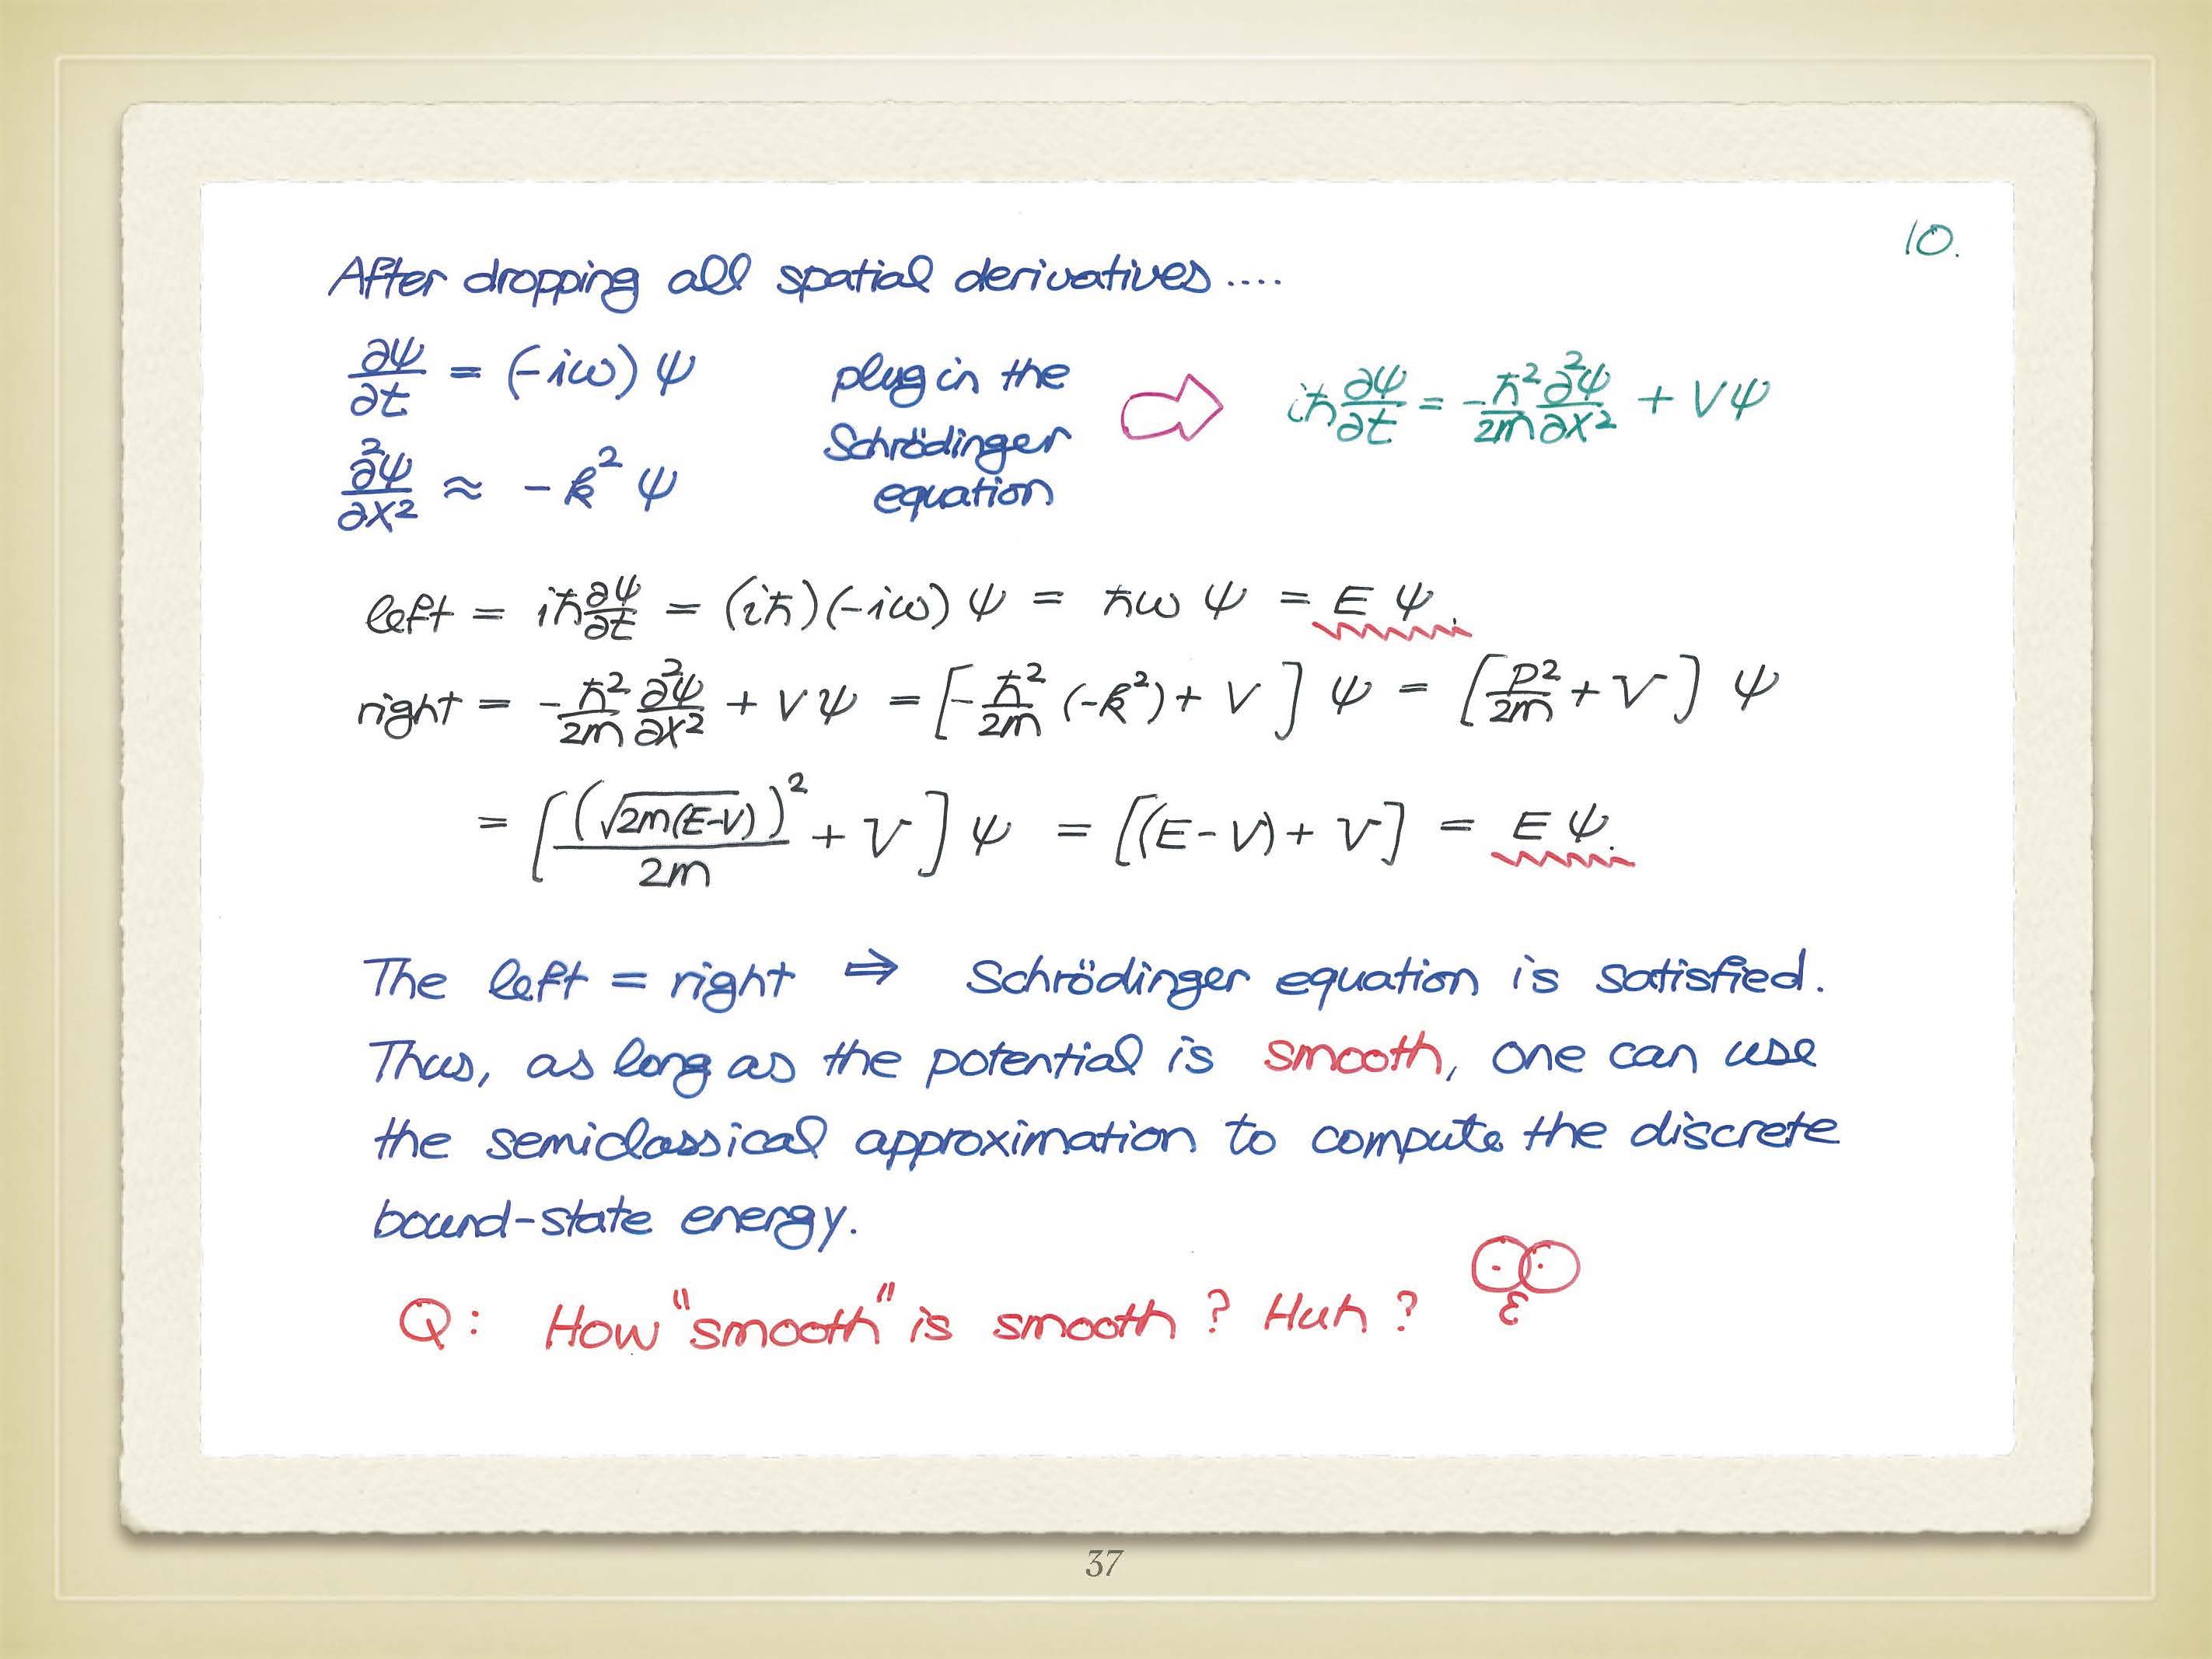 10.
After dropping all spatial derivatives....
∂ψ/∂t = (-iω) ψ
∂²ψ/∂x² ≈ -k² ψ
plug in the
Schrödinger
equation
iħ ∂ψ/∂t = -ħ²/2m ∂²ψ/∂x² + Vψ
left = iħ ∂ψ/∂t = (iħ)(-iω) ψ = ħω ψ = E ψ.
right = -ħ²/2m ∂²ψ/∂x² + Vψ = [-ħ²/2m (-k²) + V] ψ = [P²/2m + V] ψ
= [(√2m(E-V))²/2m + V] ψ = [(E-V) + V] = E ψ.
The left = right ⇒ Schrödinger equation is satisfied.
Thus, as long as the potential is smooth, one can use
the semiclassical approximation to compute the discrete
bound-state energy.
Q: How "smooth" is smooth? Huh?
37